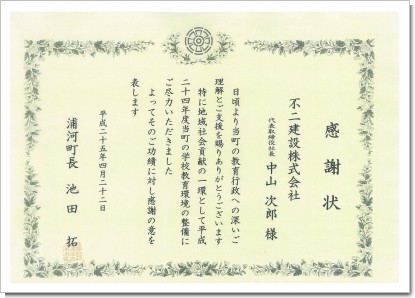 感謝状
不二建設株式会社
代表取締役社長 中山 次郎 様
日頃より当町の教育行政への深いご
理解とご支援を賜りありがとうございます
特に地域社会貢献の一環として平成
二十四年度当町の学校教育環境の整備に
ご尽力いただきました
よってそのご功績に対し感謝の意を
表します
平成二十五年四月二十二日
浦河町長 池田 拓